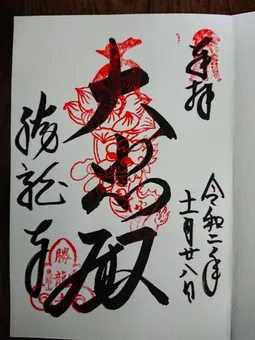 奉拝
令和二年
十一月廿八日
大悲殿
勝龍寺
勝龍